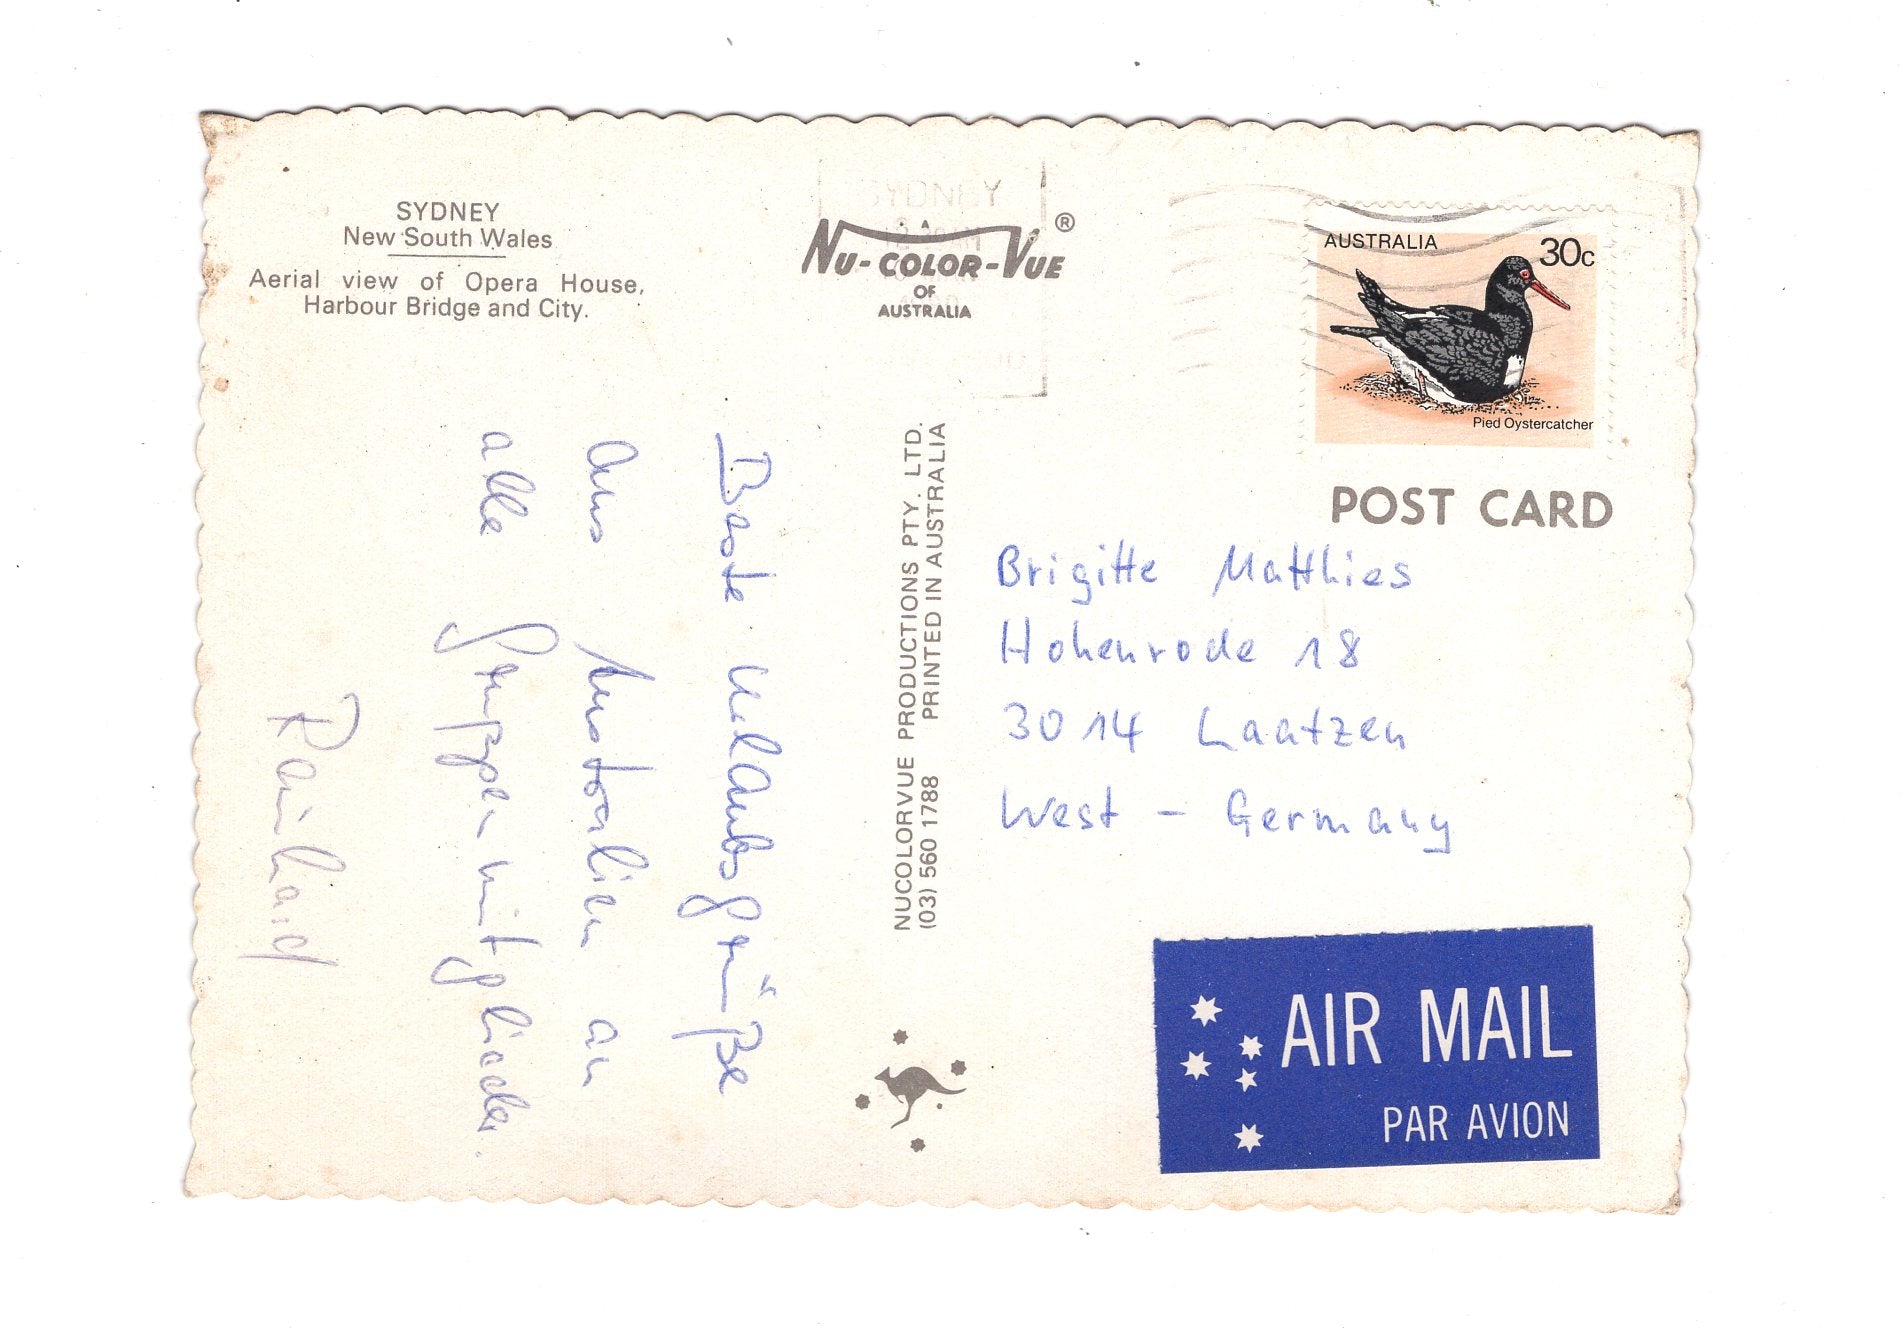 SYDNEY
New South Wales
Aerial view of Opera House,
Harbour Bridge and City.
SYDNEY
NU-COLOR-VUE ®
OF
AUSTRALIA
AUSTRALIA
30c
Pied Oystercatcher
POST CARD
Beste Urlaubsgrüße
aus Australien an
alle Gruppenmitglieder.
Rainhard
NUCOLORVUE PRODUCTIONS PTY. LTD.
(03) 560 1788 PRINTED IN AUSTRALIA
Brigitte Matthies
Hohenrode 18
3014 Laatzen
West - Germany
AIR MAIL
PAR AVION